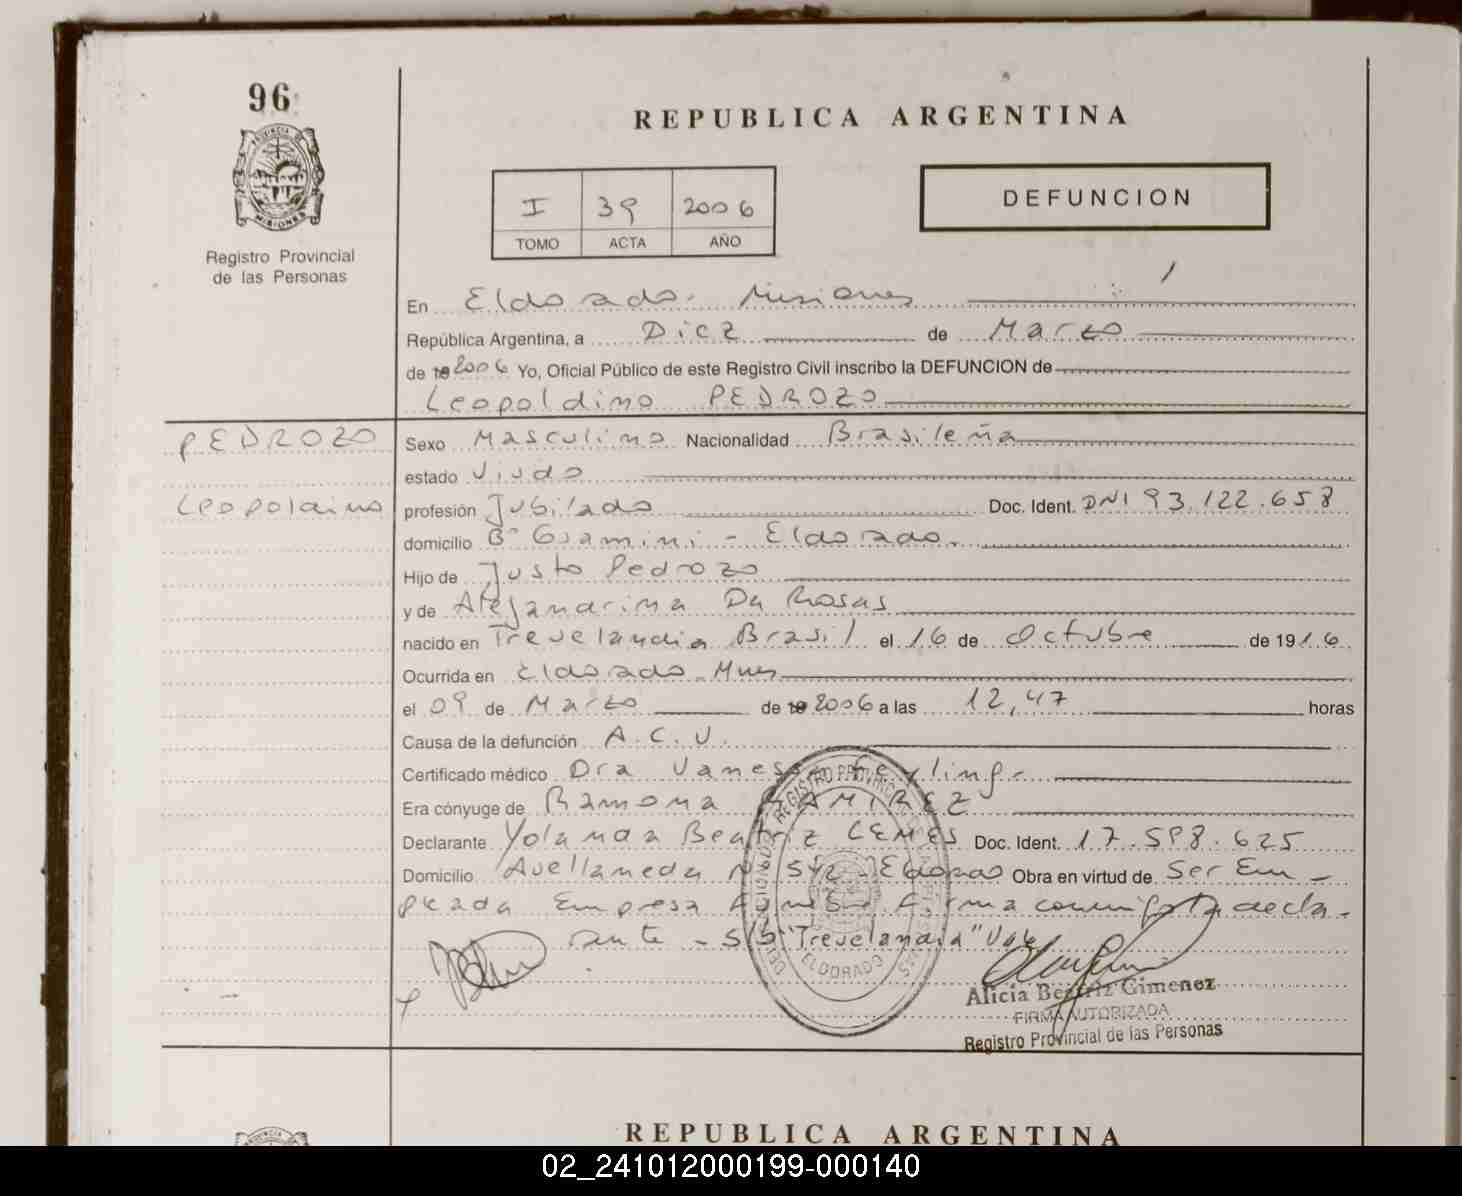 96
REPUBLICA ARGENTINA
PROVINCIA DE
MISIONES
Registro Provincial
de las Personas
I 39 2006
TOMO ACTA AÑO
DEFUNCION
En Eldorado. Misiones
República Argentina, a Diez de Marzo
de 2006 Yo, Oficial Público de este Registro Civil inscribo la DEFUNCION de
Leopoldino PEDROZO
PEDROZO
Leopoldino
Sexo Masculino Nacionalidad Brasileña
estado Viudo
profesión Jubilado Doc. Ident. DNI 93.122.658
domicilio B° Guamini - Eldorado.
Hijo de Justo Pedrozo
y de Alejandrina Da Rosas
nacido en Trevelandia Brasil el 16 de Octubre de 1916
Ocurrida en Eldorado. Mnes
el 09 de Marzo de 2006 a las 12,47 horas
Causa de la defunción A.C.V.
Certificado médico Dra Vanessa
Era cónyuge de Ramona RAMIREZ
Declarante Yolanda Beatriz LEMES Doc. Ident. 17.598.625
Domicilio Avellaneda N° S/N - Eldorado Obra en virtud de Ser Em-
pleada Empresa Funebre Firma conmigo la decla-
rante - S/B "Trevelandia" Vale
REGISTRO PROVINCIAL DE LAS PERSONAS
ELDORADO
Alicia Beatriz Gimenez
FIRMA AUTORIZADA
Registro Provincial de las Personas
REPUBLICA ARGENTINA
02_241012000199-000140